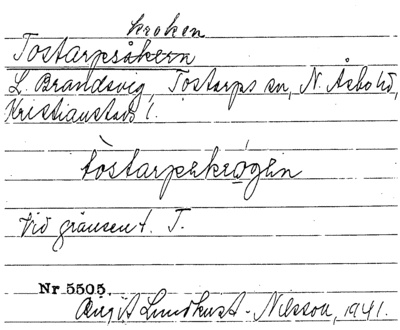 kroken
Tostarpsåkern
L. Brandsvig, Tostarps sn, N. Åsbo hd,
Kristianstads l.
tòstarpskrógen
Vid gränsen t. T.
Nr 5505.
Birgit Lundkvist-Nilsson, 1941.